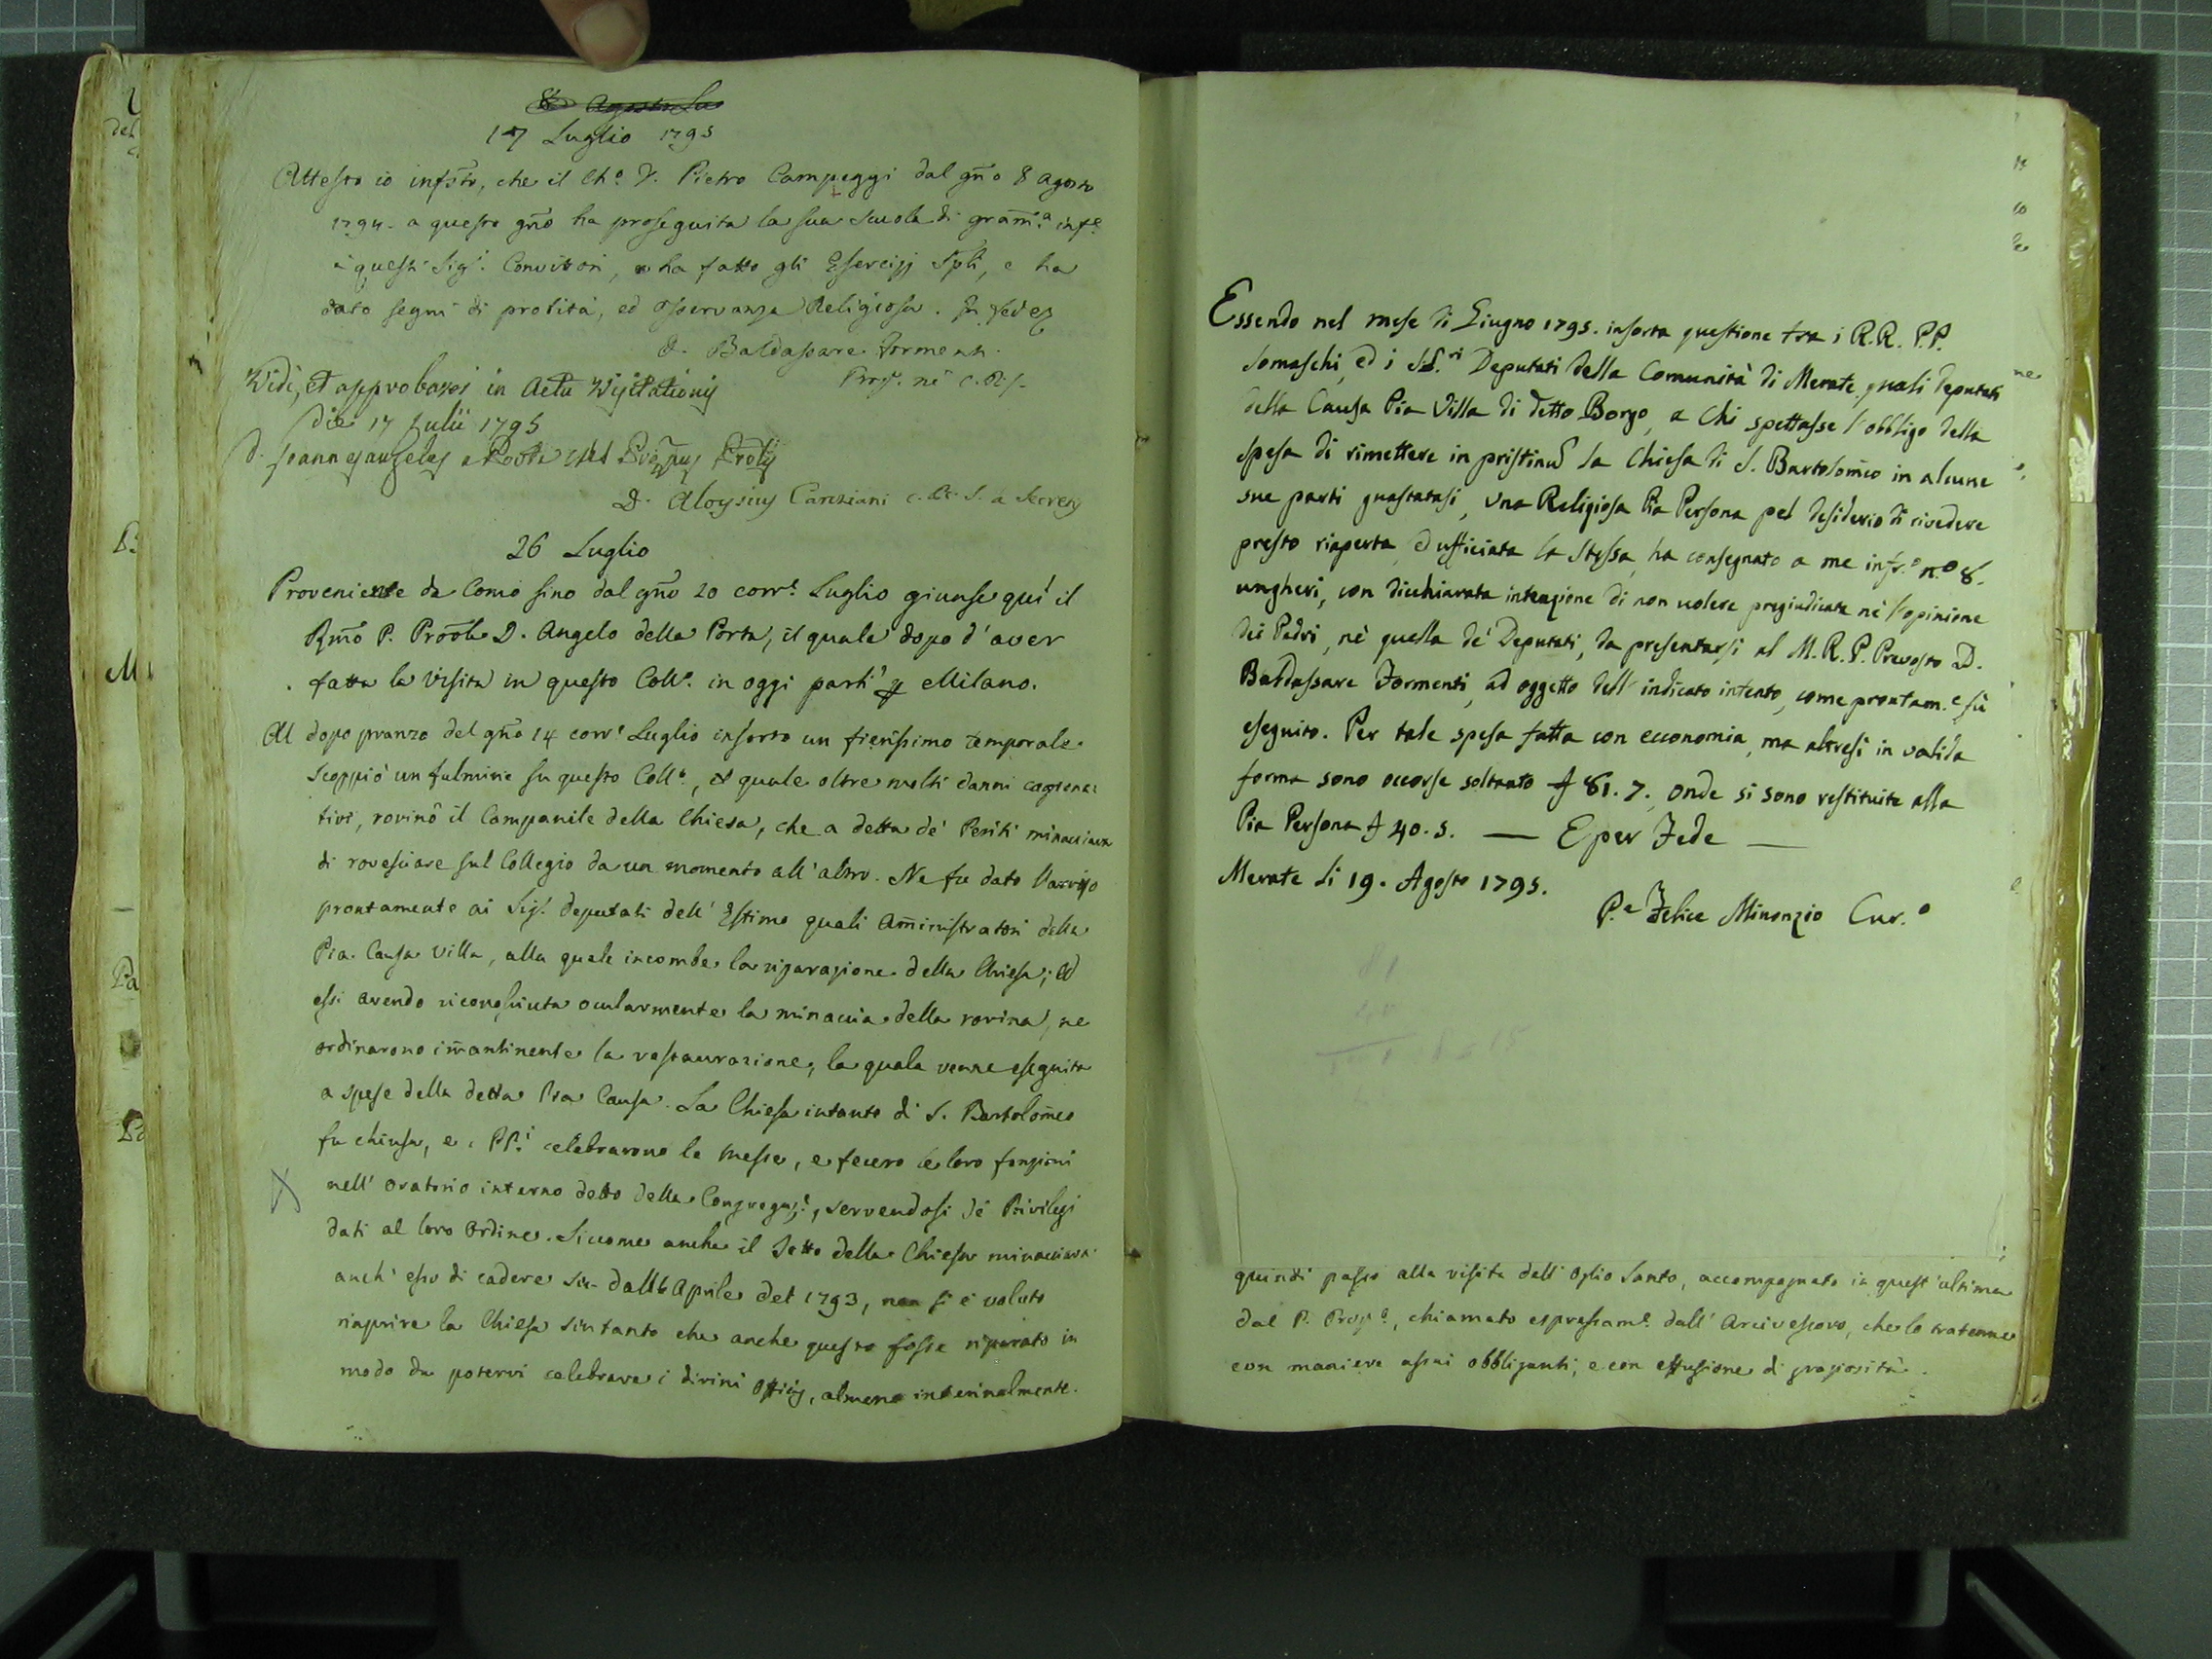 17 Luglio 1795
Attesto io infrõ, che il Chº. D. Pietro Campeggi dal gño 8 Agosto
1794. a questo gño ha proseguita la sua scuola di gram̃ª. infe
a questi Sigi. Convittori, ha fatto gli Esercizj Spli, e ha
dato segni di probità, ed osservanza Religiosa. In fede
D. Baldassare Formenti
Vidi, et approbavi in Actu Visitationis
die 17 Julii 1795
D. Aloysius Canziani C. R. S. a Secretis
26 Luglio
Proveniente da Como sino dal gño 20 corre. Luglio giunse quì il
Rmõ P. Prõvle D. Angelo della Porta, il quale dopo d'aver
fatta la visita in questo Collº. in oggi partì p Milano.
Al dopo pranzo del gño 14 corre Luglio insorto un fierissimo temporale
scoppiò un fulmine su questo Collº., il quale oltre molti danni cagiona-
tivi, rovinò il Campanile della Chiesa, che a detta de' Periti minacciava
di rovesciare sul Collegio da un momento all'altro. Ne fu dato l'avviso
prontamente ai Sigi. deputati dell'Estimo quali Am̃inistratori della
Pia Causa Villa, alla quale incombe la riparazione della Chiesa; ed
essi avendo riconosciuta ocularmente la minaccia della rovina, ne
ordinarono im̃antinente la restaurazione, la quale venne eseguita
a spese della detta Pia Causa. La Chiesa intanto di S. Bartolom̃eo
fu chiusa, e i PP.i celebrarono le Messe, e fecero le loro fonzioni
nell'Oratorio interno detto della Congregaz.e, servendosi de' Privilegi
dati al loro Ordine. Siccome anche il Tetto della Chiesa minacciava
anch'esso di cadere sin dall'Aprile del 1793, non si è voluto
riaprire la Chiesa sintanto che anche questo fosse riparato in
modo da potervi celebrare i divini Officij, almeno interinalmente.
Essendo nel mese di Giugno 1795. insorta questione tra i R.R. P.P.
Somaschi, ed i SS.ri Deputati della Comunità di Merate quali Deputati
della Causa Pia Villa di detto Borgo, a chi spettasse l'obbligo della
spesa di rimettere in pristinũ la Chiesa di S. Bartolom̃eo in alcune
sue parti guastatasi, una Religiosa Pia Persona pel desiderio di rivedere
presto riaperta, ed ufficiata la Stessa, ha consegnato a me infr.º n.º 8.
ungheri, con dichiarata intenzione di non volere pregiudicata nè l'opinione
dei Padri, nè quella de' Deputati, da presentarsi al M. R. P. Prevosto D.
Baldassare Formenti, ad oggetto dell'indicato intento, come prontam.e fù
eseguito. Per tale spesa fatta con economia, ma altresì in valida
forma sono occorse soltanto £ 81. 7., onde si sono restituite alla
Pia Persona £ 40. 5. — E per Fede —
Merate li 19. Agosto 1795.
P.e Felice Minonzio Cur.º
quindi passò alla visita dell'Oglio Santo, accompagnato in quest'ultima
dal P. Propº., chiamato espressam.e dall'Arcivescovo, che lo trattenne
con maniere assai obbliganti, e con effusione di graziosità.